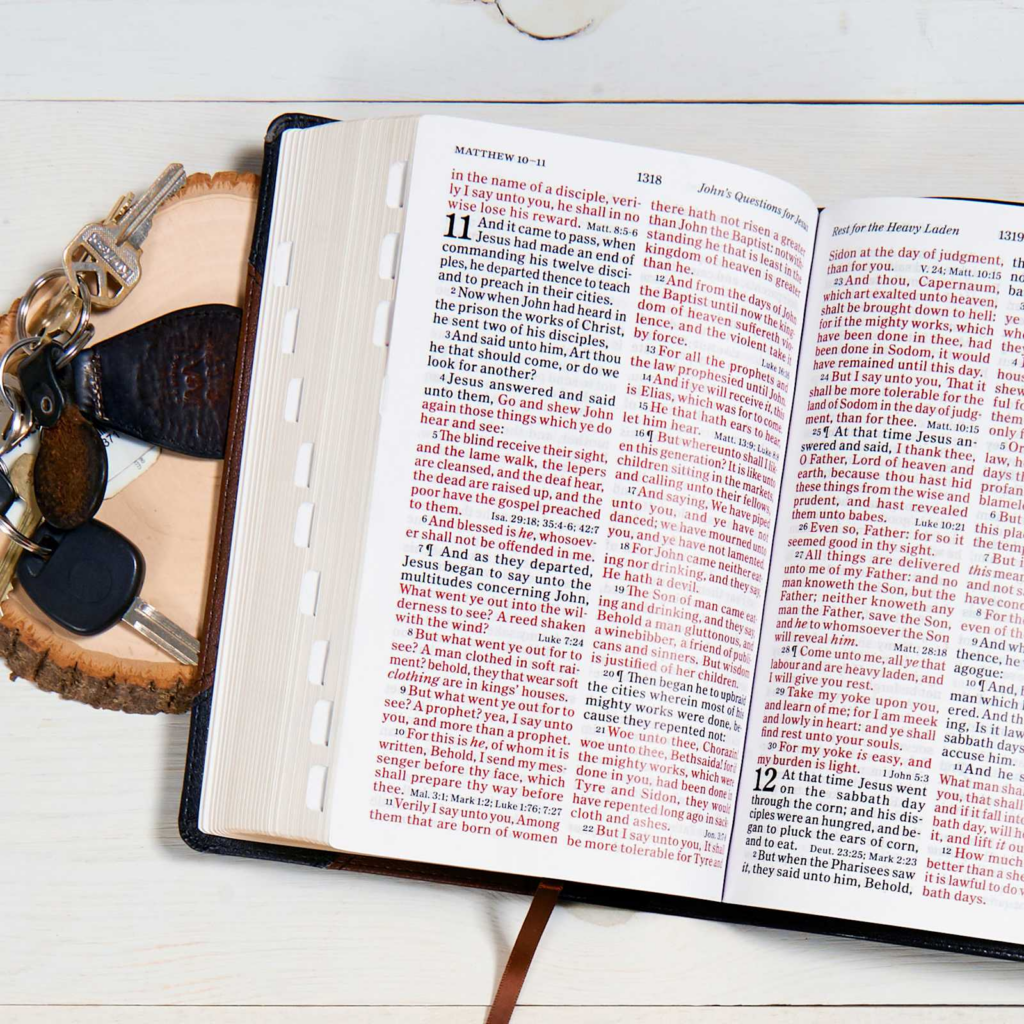 MATTHEW 10–11
1318
John's Questions for Jesus
in the name of a disciple, veri-
ly I say unto you, he shall in no
wise lose his reward. Matt. 8:5-6
11 And it came to pass, when
Jesus had made an end of
commanding his twelve disci-
ples, he departed thence to teach
and to preach in their cities.
2 Now when John had heard in
the prison the works of Christ,
he sent two of his disciples,
3 And said unto him, Art thou
he that should come, or do we
look for another?
4 Jesus answered and said
unto them, Go and shew John
again those things which ye do
hear and see:
5 The blind receive their sight,
and the lame walk, the lepers
are cleansed, and the deaf hear,
the dead are raised up, and the
poor have the gospel preached
to them. Isa. 29:18; 35:4-6; 42:7
6 And blessed is he, whosoev-
er shall not be offended in me.
7 ¶ And as they departed,
Jesus began to say unto the
multitudes concerning John,
What went ye out into the wil-
derness to see? A reed shaken
with the wind? Luke 7:24
8 But what went ye out for to
see? A man clothed in soft rai-
ment? behold, they that wear soft
clothing are in kings' houses.
9 But what went ye out for to
see? A prophet? yea, I say unto
you, and more than a prophet.
10 For this is he, of whom it is
written, Behold, I send my mes-
senger before thy face, which
shall prepare thy way before
thee. Mal. 3:1; Mark 1:2; Luke 1:76; 7:27
11 Verily I say unto you, Among
them that are born of women
there hath not risen a greater
than John the Baptist: notwith-
standing he that is least in the
kingdom of heaven is greater
than he.
12 And from the days of John
the Baptist until now the king-
dom of heaven suffereth vio-
lence, and the violent take it
by force. Luke 16:16
13 For all the prophets and
the law prophesied until John.
14 And if ye will receive it, this
is Elias, which was for to come.
15 He that hath ears to hear,
let him hear. Matt. 13:9; Luke 8:8
16 ¶ But whereunto shall I lik-
en this generation? It is like unto
children sitting in the markets,
and calling unto their fellows,
17 And saying, We have piped
unto you, and ye have not
danced; we have mourned unto
you, and ye have not lamented.
18 For John came neither eat-
ing nor drinking, and they say,
He hath a devil.
19 The Son of man came eat-
ing and drinking, and they say,
Behold a man gluttonous, and
a winebibber, a friend of publi-
cans and sinners. But wisdom
is justified of her children.
20 ¶ Then began he to upbraid
the cities wherein most of his
mighty works were done, be-
cause they repented not:
21 Woe unto thee, Chorazin!
woe unto thee, Bethsaida! for if
the mighty works, which were
done in you, had been done in
Tyre and Sidon, they would
have repented long ago in sack
cloth and ashes. Jon. 3:7-8
22 But I say unto you, It shall
be more tolerable for Tyre and
Rest for the Heavy Laden
1319
Sidon at the day of judgment,
than for you. V. 24; Matt. 10:15
23 And thou, Capernaum,
which art exalted unto heaven,
shalt be brought down to hell:
for if the mighty works, which
have been done in thee, had
been done in Sodom, it would
have remained until this day.
24 But I say unto you, That it
shall be more tolerable for the
land of Sodom in the day of judg-
ment, than for thee. Matt. 10:15
25 ¶ At that time Jesus an-
swered and said, I thank thee,
O Father, Lord of heaven and
earth, because thou hast hid
these things from the wise and
prudent, and hast revealed
them unto babes. Luke 10:21
26 Even so, Father: for so it
seemed good in thy sight.
27 All things are delivered
unto me of my Father: and no
man knoweth the Son, but the
Father; neither knoweth any
man the Father, save the Son,
and he to whomsoever the Son
will reveal him. Matt. 28:18
28 ¶ Come unto me, all ye that
labour and are heavy laden, and
I will give you rest.
29 Take my yoke upon you,
and learn of me; for I am meek
and lowly in heart: and ye shall
find rest unto your souls.
30 For my yoke is easy, and
my burden is light. 1 John 5:3
12 At that time Jesus went
on the sabbath day
through the corn; and his dis-
ciples were an hungred, and be-
gan to pluck the ears of corn,
and to eat. Deut. 23:25; Mark 2:23
2 But when the Pharisees saw
it, they said unto him, Behold,
4
hous
shew
ful fo
them
only
law, h
days t
profan
blamel
6 But
this pla
the tem
7 But i
this mean
and not s
have cond
8 For th
even of th
9 And wh
thence, he
agogue:
10 ¶ And,
man which
ered. And th
ing, Is it law
sabbath days
accuse him.
11 And he s
What man sha
you, that shall
and if it fall into
bath day, will he
it, and lift it out
12 How much
better than a she
it is lawful to do
bath days.